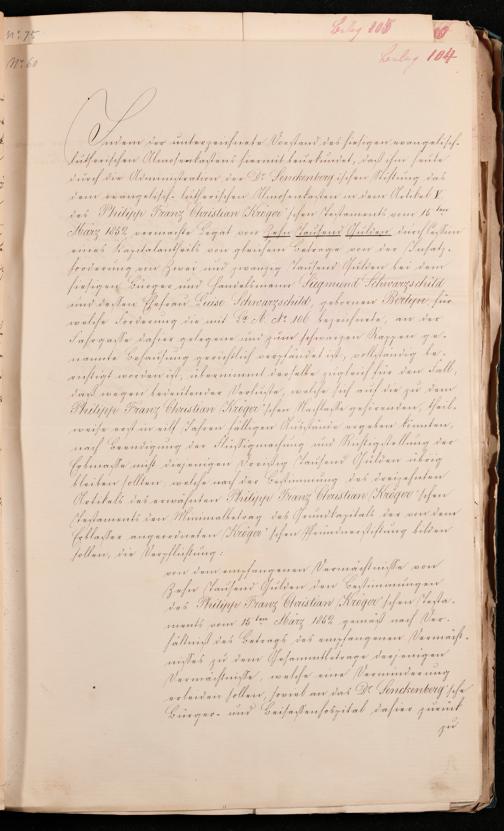 N° 75
N° 60
Beilag 105
Beilag 104
Indem der unterzeichnete Vorstand des hiesigen evangelisch-
lutherischen Almosenkastens hiermit beurkundet, daß ihm heute
durch die Administration der Dr. Senckenberg'ischen Stiftung das
dem evangelisch-lutherischen Almosenkasten in dem Artikel V
des Philipp Franz Christian Kröger'schen Testaments vom 16ten
März 1862 vermachte Legat von Zehn Tausend Gulden durch Cession
eines Kapitalantheils von gleichem Betrage von der Insatz-
forderung von Zwei und zwanzig Tausend Gulden bei dem
hiesigen Bürger und Handelsmann Siegmund Schwarzschild
und dessen Ehefrau Luise Schwarzschild, gebornen Bertyne, für
welche Forderung die mit Lit. A. N° 106 bezeichnete, an der
Fahrgasse dahier gelegene und zum schwarzen Rappen ge-
nannte Behausung gerichtlich verpfändet ist, vollständig be-
richtigt worden ist, übernimmt derselbe zugleich für den Fall,
daß wegen bedeutender Verluste, welche sich auf die zu dem
Philipp Franz Christian Kröger'schen Nachlasse gehörenden, theil-
weise erst in elf Jahren fälligen Ausstände ergeben könnten,
nach Beendigung der Flüssigmachung und Richtigstellung der
Erbmasse nicht diejenigen Dreißig Tausend Gulden übrig
bleiben sollten, welche nach der Bestimmung des dreizehnten
Artikels des erwähnten Philipp Franz Christian Kröger'schen
Testaments den Minimalbetrag des Grundkapitals der von dem
Erblasser angeordneten Kröger'schen Pfründnerstiftung bilden
sollen, die Verpflichtung:
von dem empfangenen Vermächtnisse von
Zehn Tausend Gulden den Bestimmungen
des Philipp Franz Christian Kröger'schen Testa-
ments vom 16ten März 1862 gemäß nach Ver-
hältniß des Betrags des empfangenen Vermächt-
nisses zu dem Gesammtbetrage derjenigen
Vermächtnisse, welche eine Verminderung
erleiden sollen, soviel an das Dr. Senckenberg'sche
Bürger- und Beisassenhospital dahier zurück
zu